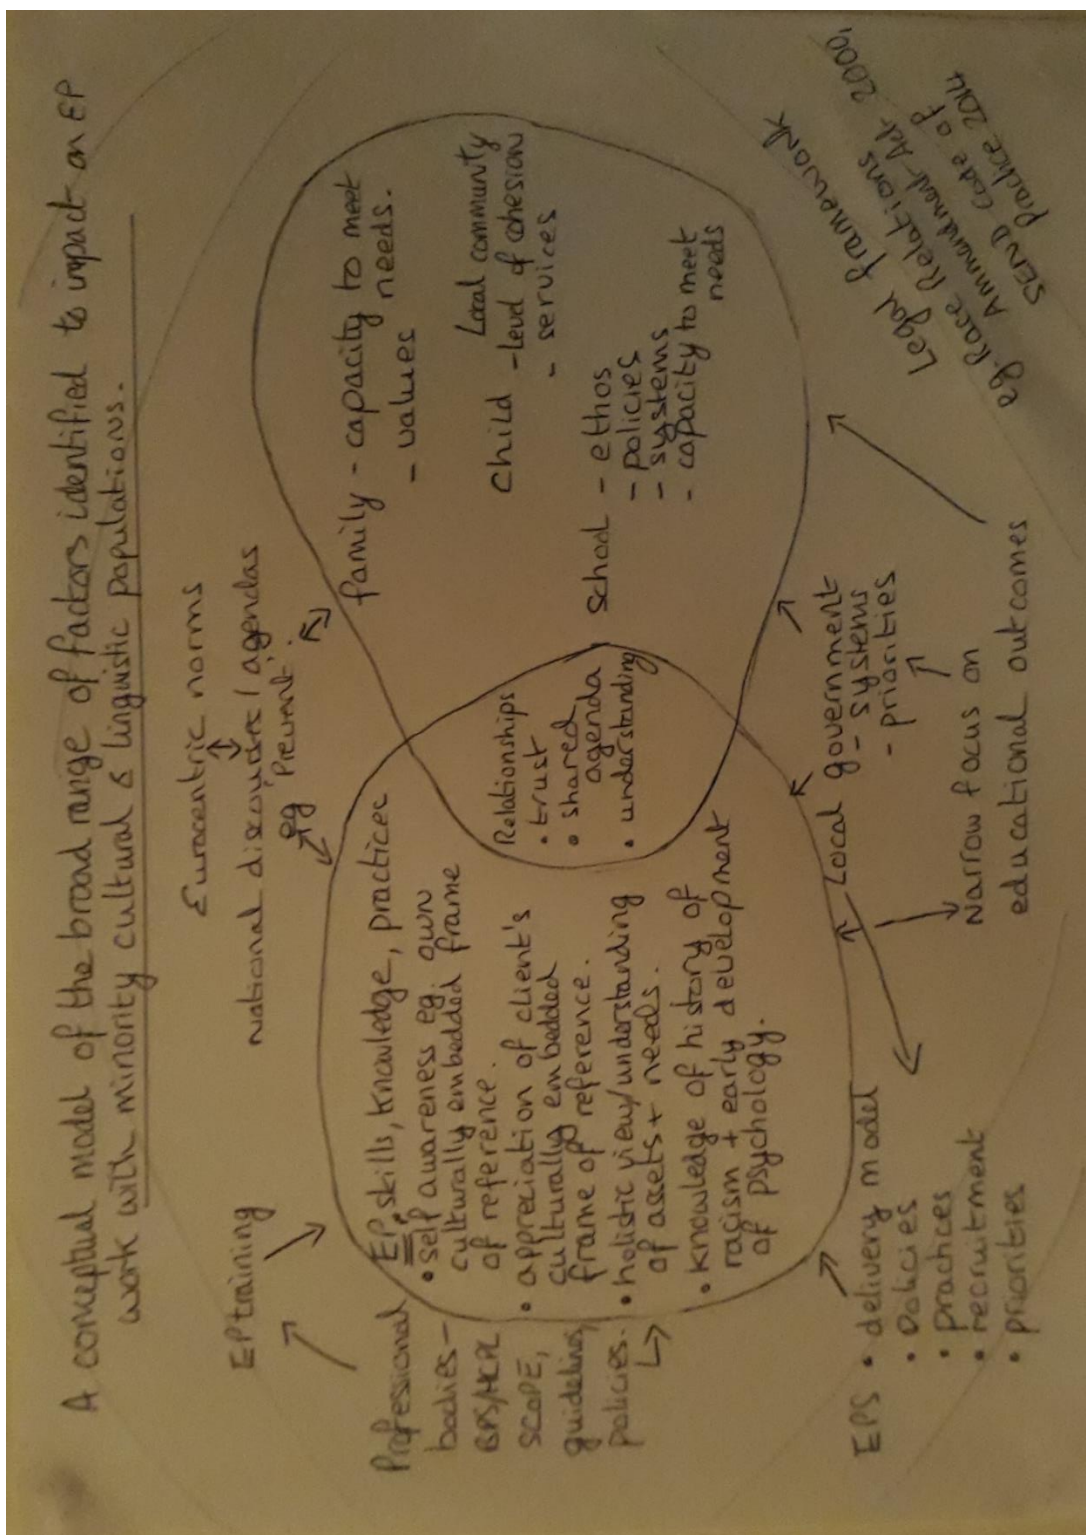 A conceptual model of the broad range of factors identified to impact on EP
work with minority cultural & linguistic populations.
Eurocentric norms
national discourses / agendas
eg Prevent.
EP training
Professional
bodies -
BPS/HCPC
SCOPE,
guidelines,
policies.
EP skills, knowledge, practices
• self awareness eg. own
culturally embedded frame
of reference.
• appreciation of client's
culturally embedded
frame of reference.
• holistic view/understanding
of assets + needs.
• knowledge of history of
racism + early development
of psychology.
Relationships
• trust
• shared
agenda
• understanding
family - capacity to meet
needs.
- values
Local community
- level of cohesion
- services
Child
School - ethos
- policies
- systems
- capacity to meet
needs
EPS • delivery model
• policies
• practices
• recruitment
• priorities
Local government
- systems
- priorities
Narrow focus on
educational outcomes
Legal framework
eg. Race Relations
Ammundment Act 2000,
SEND Code of
Practice 2014